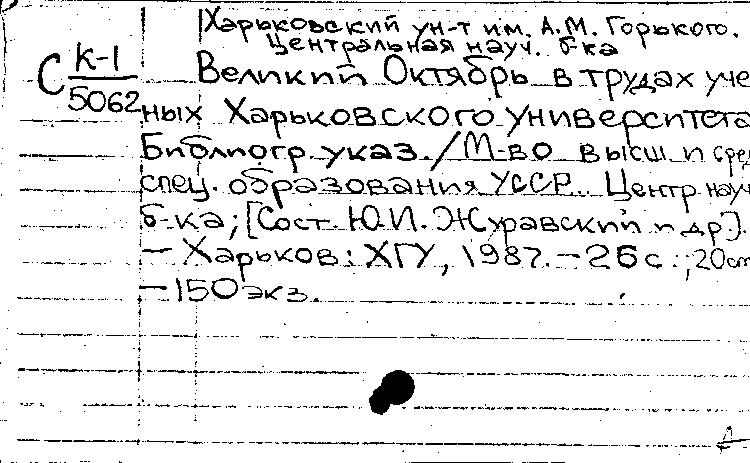 Харьковский ун-т им. А.М. Горького.
Центральная науч. б-ка
С К-1
5062
Великий Октябрь в трудах уче
ных Харьковского университета
Библиогр. указ. / М-во высш и сред
спец. образования УССР. Центр науч
б-ка; [Сост. Ю.И. Журавский и др.].
— Харьков: ХГУ, 1987. – 26 с.; 20 cm
— 150 экз.